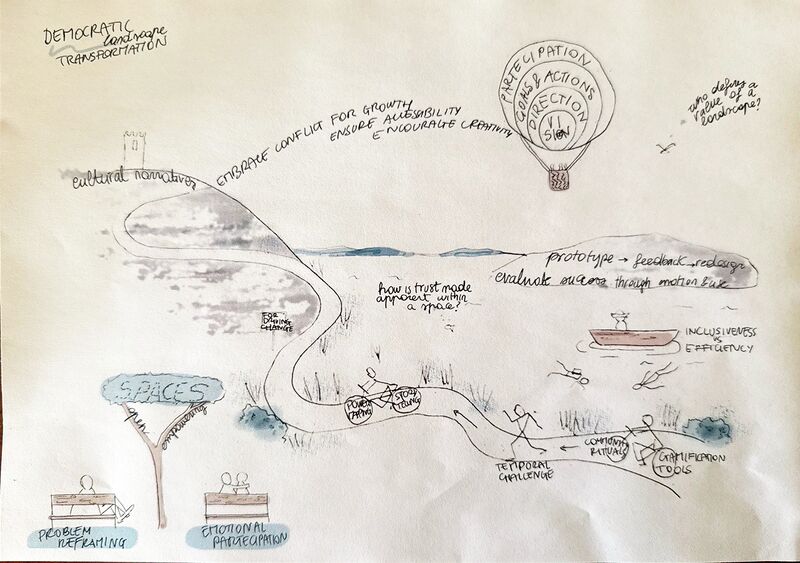 DEMOCRATIC
landscape
TRANSFORMATION
PARTECIPATION
GOALS & ACTIONS
DIRECTION
VISION
who defines a
value of a
landscape?
EMBRACE CONFLICT FOR GROWTH
ENSURE ACCESIBILITY
ENCOURATE CREATIVITY
cultural narratives
prototype → feedback → redesign
evaluate success through motion & use
how is trust made
apparent within
a space?
CHANGE
INCLUSIVENESS
vs
EFFICIENCY
SPACES
open
empowering
STORY
TELLING
TEMPORAL
CHALLENGE
COMMUNITY
RITUALS
GAMIFICATION
TOOLS
PROBLEM
REFRAMING
EMOTIONAL
PARTECIPATION